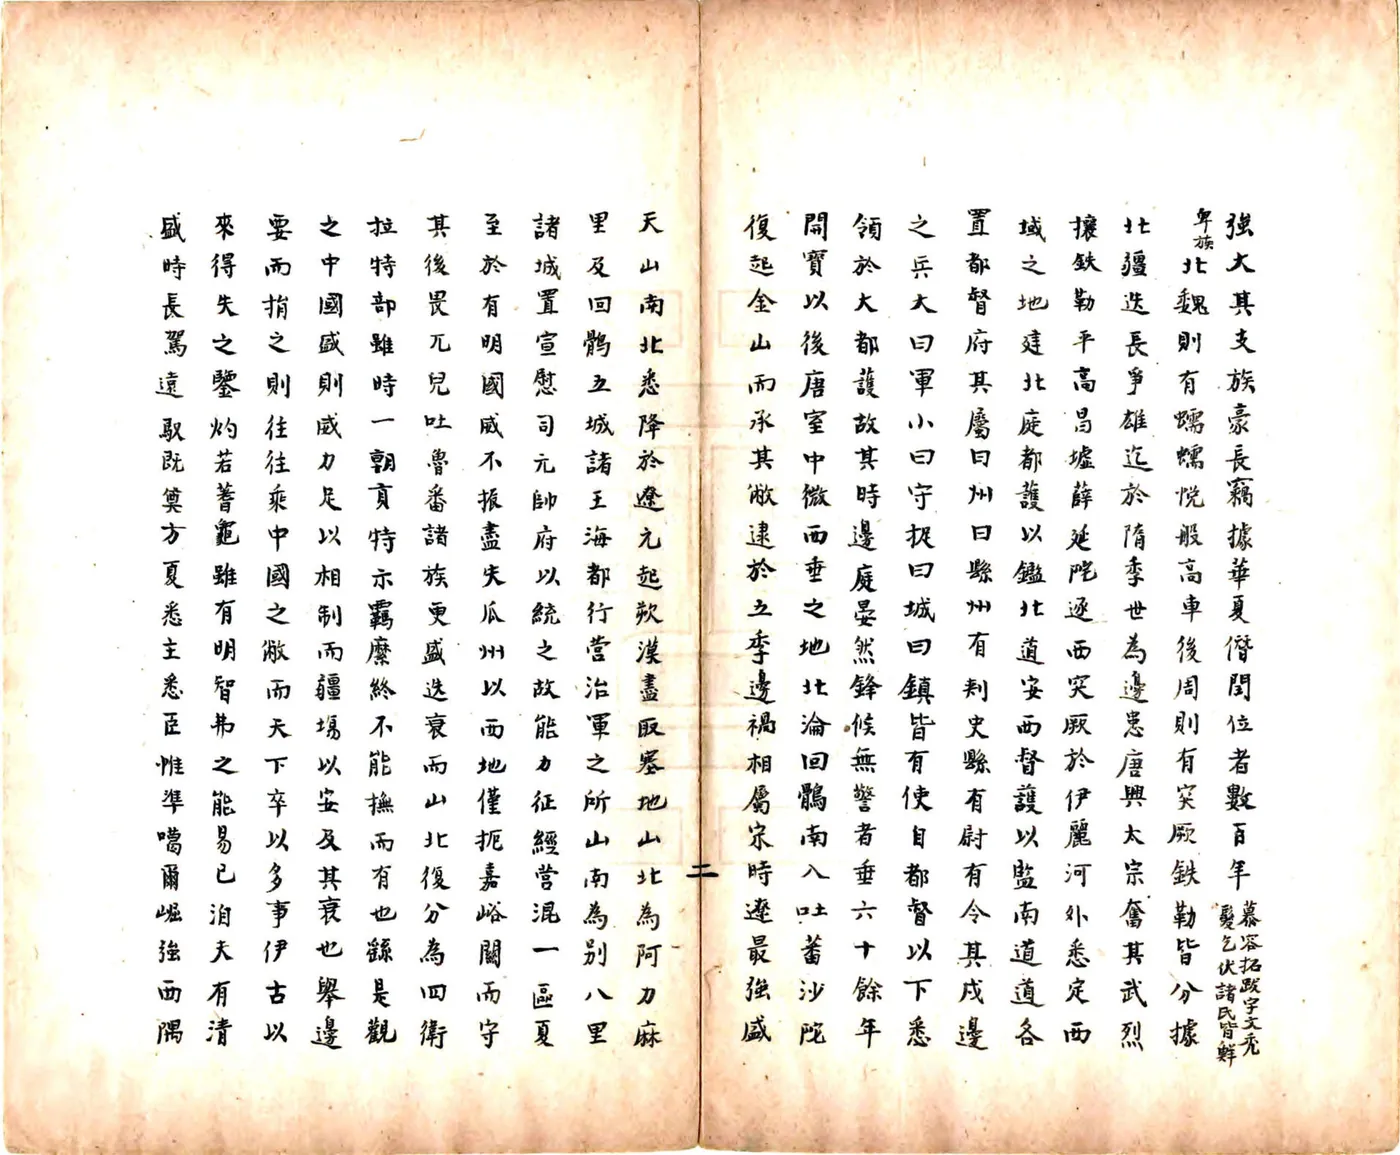 強大其支族豪長竊據華夏僭閏位者數百年慕容拓跋宇文禿髮乞伏諸氏皆鮮
卑族北魏則有蠕蠕悅般高車後周則有突厥鉄勒皆分據
北疆迭長爭雄迄於隋季世為邊患唐興太宗奮其武烈
攘鉄勒平高昌墟薛延陀逐西突厥於伊麗河外悉定西
域之地建北庭都護以鑑北道安西督護以監南道道各
置都督府其屬曰州曰縣州有刺史縣有尉有令其戍邊
之兵大曰軍小曰守捉曰城曰鎮皆有使自都督以下悉
領於大都護故其時邊庭晏然鋒候無警者垂六十餘年
開寶以後唐室中微西垂之地北淪回鶻南入吐蕃沙陀
復起金山而承其敝逮於五季邊禍相屬宋時遼最強盛
天山南北悉降於遼元起朔漠盡取塞地山北為阿力麻
里及回鶻五城諸王海都行营治軍之所山南為别八里
諸城置宣慰司元帥府以統之故能力征經营混一區夏
至於有明國威不振盡失瓜州以西地僅扼嘉峪關而守
其後畏兀兒吐魯番諸族更盛迭衰而山北復分為四衛
拉特部雖時一朝貢特示羈縻終不能撫而有也繇是觀
之中國盛則威力足以相制而疆埸以安及其衰也舉邊
要而捐之則往往乘中國之敝而天下卒以多事伊古以
來得失之鑒灼若蓍龜雖有明智弗之能易已洎天有清
盛時長駕遠馭既奠方夏悉主悉臣惟準噶爾崛強西隅
二